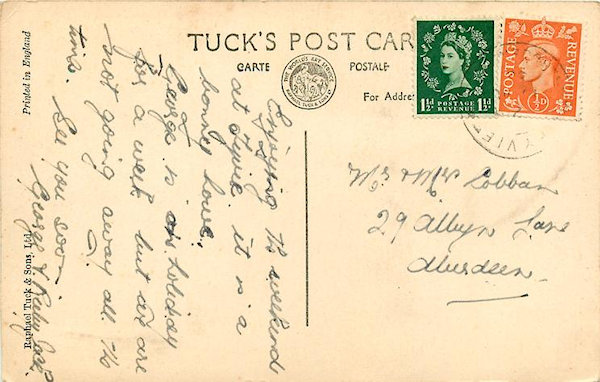 TUCK'S POST CAR
CARTE POSTALE
THE WORLD'S ART SERVICE
RAPHAEL TUCK & SONS LTD
For Addre
POSTAGE REVENUE
1½D 1½D
POSTAGE REVENUE
½D
Printed in England
Raphael Tuck & Sons, Ltd.
Enjoying the weekend
at Fyvie it is a
bonnie house.
George is on holiday
for a week but we are
not going away all the
time. See you soon
George &
Mr & Mrs Cobban
29 Albyn Lane
Aberdeen